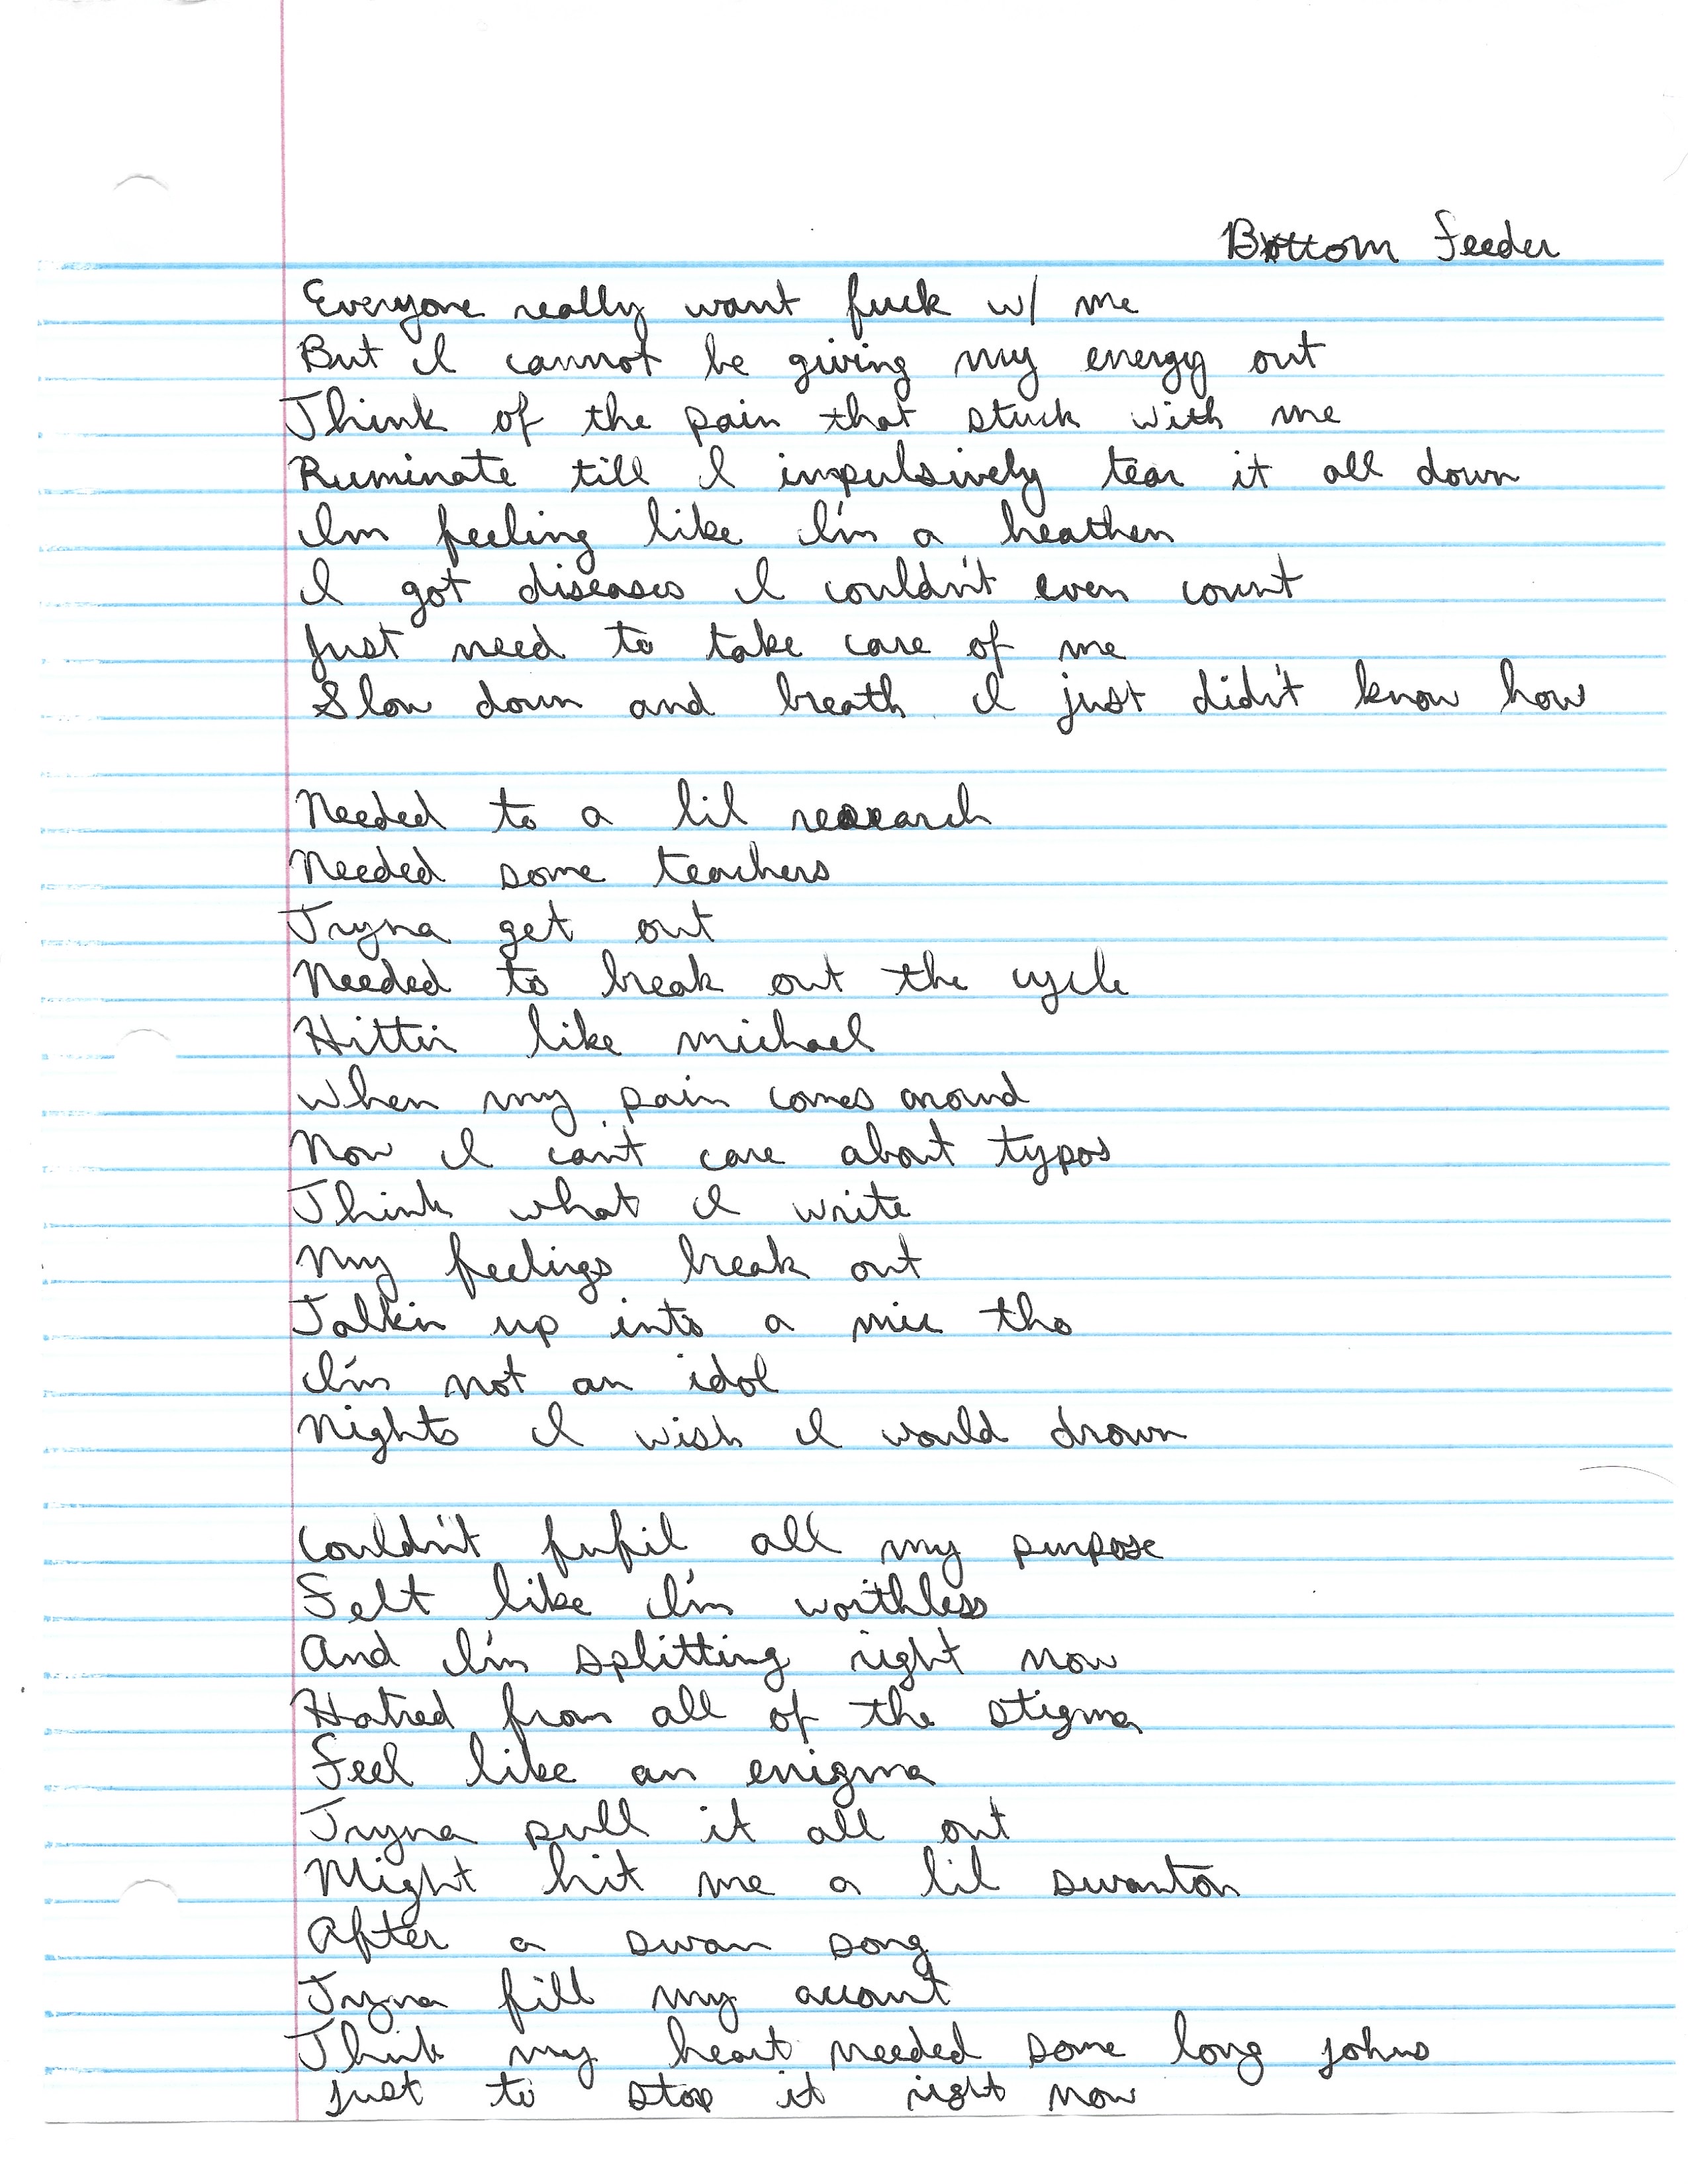 Bottom feeder
Everyone really want fuck w/ me
But I cannot be giving my energy out
Think of the pain that stuck with me
Ruminate till I impulsively tear it all down
Im feeling like I'm a heathen
I got diseases I couldn't even count
Just need to take care of me
Slow down and breath I just didn't know how

Needed to a lil research
Needed some teachers
Tryna get out
Needed to break out the cycle
Hittin like michael
When my pain comes around
Now I can't care about typos
Think what I write
My feelings break out
Talkin up into a mic tho
I'm not an idol
Nights I wish I would drown

Couldn't fufil all my purpose
Felt like I'm worthless
And I'm splitting right now
Hatred from all of the stigma
Feel like an enigma
Tryna pull it all out
Might hit me a lil swanton
After a swan song
Tryna fill my account
Think my heart needed some long johns
Just to stop it right now